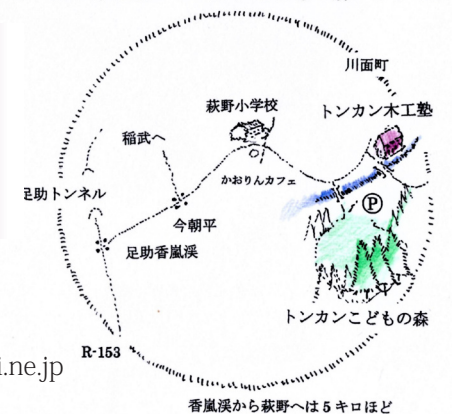 川面町
萩野小学校
トンカン木工塾
稲武へ
かおりんカフェ
足助トンネル
Ⓟ
今朝平
足助香嵐渓
トンカンこどもの森
R-153
i.ne.jp
香嵐渓から萩野へは5キロほど